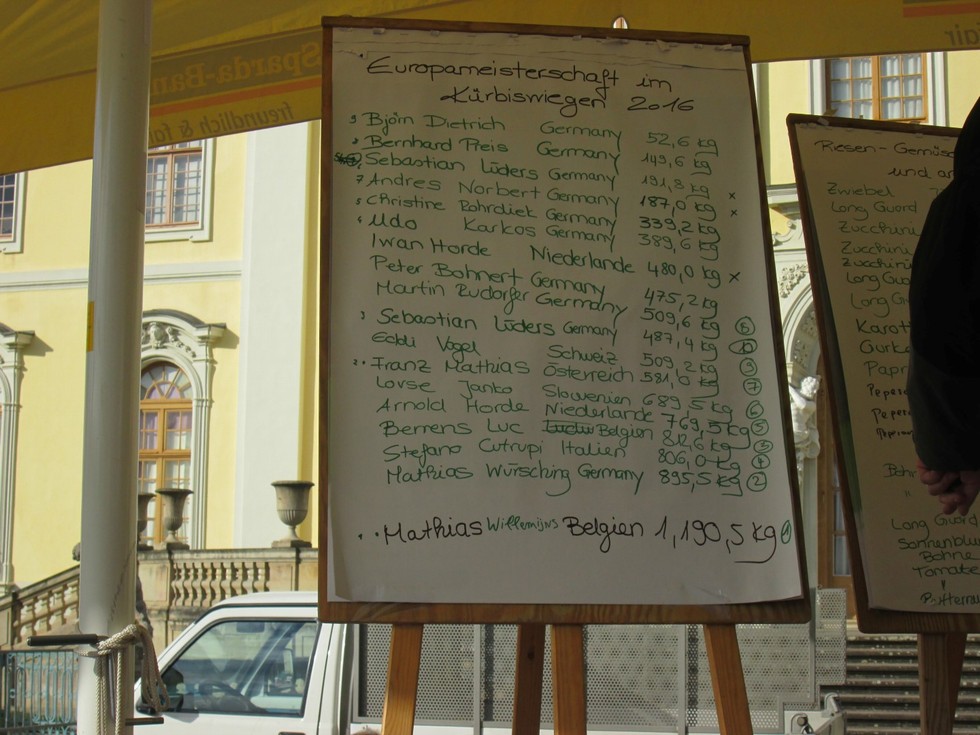 Sparda-Ban
freundlich & fai
fair
Europameisterschaft im
Kürbiswiegen 2016
9 Björn Dietrich Germany 52,6 kg
Bernhard Preis Germany 149,6 kg
Sebastian Lüders Germany 191,8 kg x
7 Andres Norbert Germany 187,0 kg x
Christine Bohrdiek Germany 339,2 kg
Udo Karkos Germany 389,6 kg
Iwan Horde Niederlande 480,0 kg x
Peter Bohnert Germany 475,2 kg
Martin Rudorfer Germany 509,6 kg 8
Sebastian Lüders Germany 487,4 kg 10
Eddi Vogel Schweiz 509,2 kg 9
Franz Mathias Österreich 581,0 kg 7
Lovse Janko Slowenien 689,5 kg 6
Arnold Horde Niederlande 769,5 kg 5
Berrens Luc Belgien 812,6 kg 3
Stefano Cutrupi Italien 806,0 kg 4
Mathias Würsching Germany 895,5 kg 2
Mathias Willemijns Belgien 1,190,5 kg 1
Riesen-Gemüs
und an
Zwiebel
Long Guord
Zucchini
Zucchini
Zucchini
Long Guo
Long G
Karott
Gurke
Papr
Peper
Peper
Long Guord
Sonnenblu
Bohne
Tomate